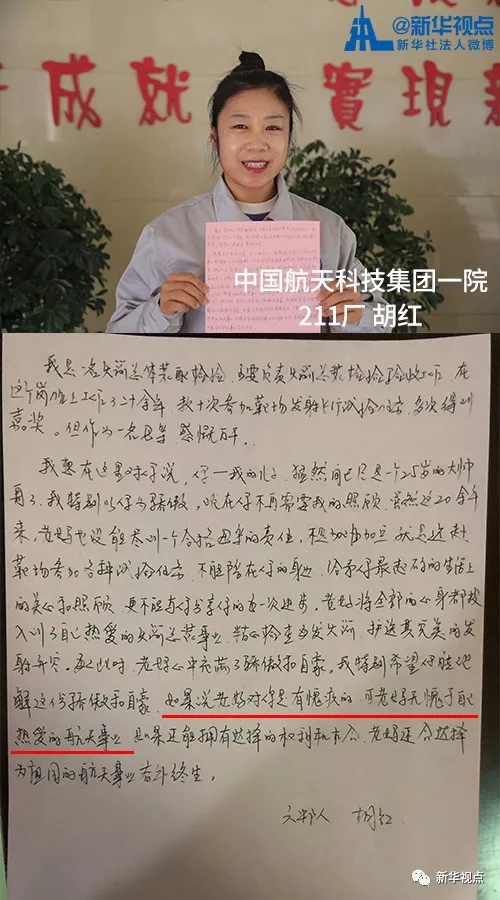 @新华视点
新华社法人微博
成就 實現新
中国航天科技集团一院
211厂 胡红
我是一名火箭总体装配检验,主要负责火箭总装检验验收工作,在
这个岗位上工作了二十余年,数十次参加靶场发射飞行试验任务,多次得到
嘉奖。但作为一名母亲感慨万千。
我想在这里对你说,仔—我的儿子,猛然间已是一个25岁的大帅
哥了,我特别以你为骄傲,现在你不再需要我的照顾,虽然这20余年
来,老妈也没能尽到一个合格母亲的责任,
靶场参加各种试验任务,不能陪在你的身边,给予你最起码的生活上
的关心和照顾,更不能与你分享你的每一次进步。老妈将全部的心身都投
入到了自己热爱的火箭总装事业,精心检查每发火箭,
每此时,老妈心中充满了骄傲和自豪。我特别希望你能理
解这份骄傲和自豪,如果说老妈对你是有愧疚的,可老妈无愧于自己
热爱的航天事业,如果还能拥有选择的权利和机会,老妈还会选择
为祖国的航天事业奋斗终生。
胡红
新华视点